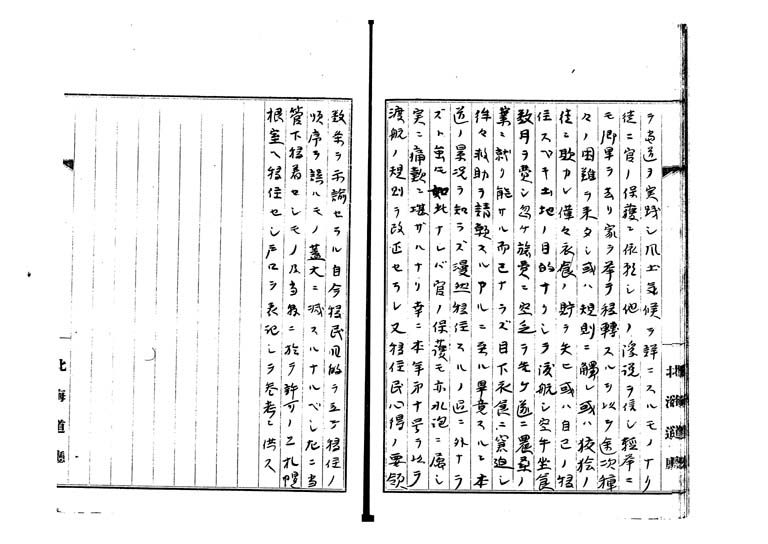 ラ当道ヲ実践シ風土気候ヲ詳ニスルモノナリ
徒ニ官ノ保護ニ依頼シ他ノ浮説ヲ信シ軽挙ニ
モ郷里ヲ去リ家ヲ挙ヲ移転スルヲ以ゟ途次種
々ノ困難ヲ来タシ或ハ規則ニ觸レ或ハ狡猾ノ
徒ニ欺カレ僅々衣食ノ貯ヲ失ヒ或ハ自己ノ移
住スベキ土地ノ目的ナリシヲ渡航シ空手坐食
数月ヲ費シ忽ケ旅費ニ空乏ヲ告ケ遂ニ農桑ノ
業ニ就リ能ザル而已ナラズ目下衣食ニ窮迫シ
徃々救助ヲ請願スルアルニ至ル畢竟スルニ本
道ノ景況ヲ知ラズ漫然移住スルノ過ニ外ナラ
ズト虽モ如此ナレバ官ノ保護モ亦水泡ニ属シ
実ニ痛歎ニ堪ザルナリ幸ニ本年第十号ヲ以ラ
渡航ノ規則ヲ改正セラレ又移住民心得ノ要領
数条ヲ示諭セラル自今移民目的ヲ立テ移住ノ
順序ヲ誤ルモノ蓋大ニ減スルナルベシ尤ニ当
管下移着セシモノ及当穀ニ於ラ許可ノ上札幌
根室ヘ移住セシ戸口ヲ表記シラ参考ニ供ス
北海道廳
北海道廳